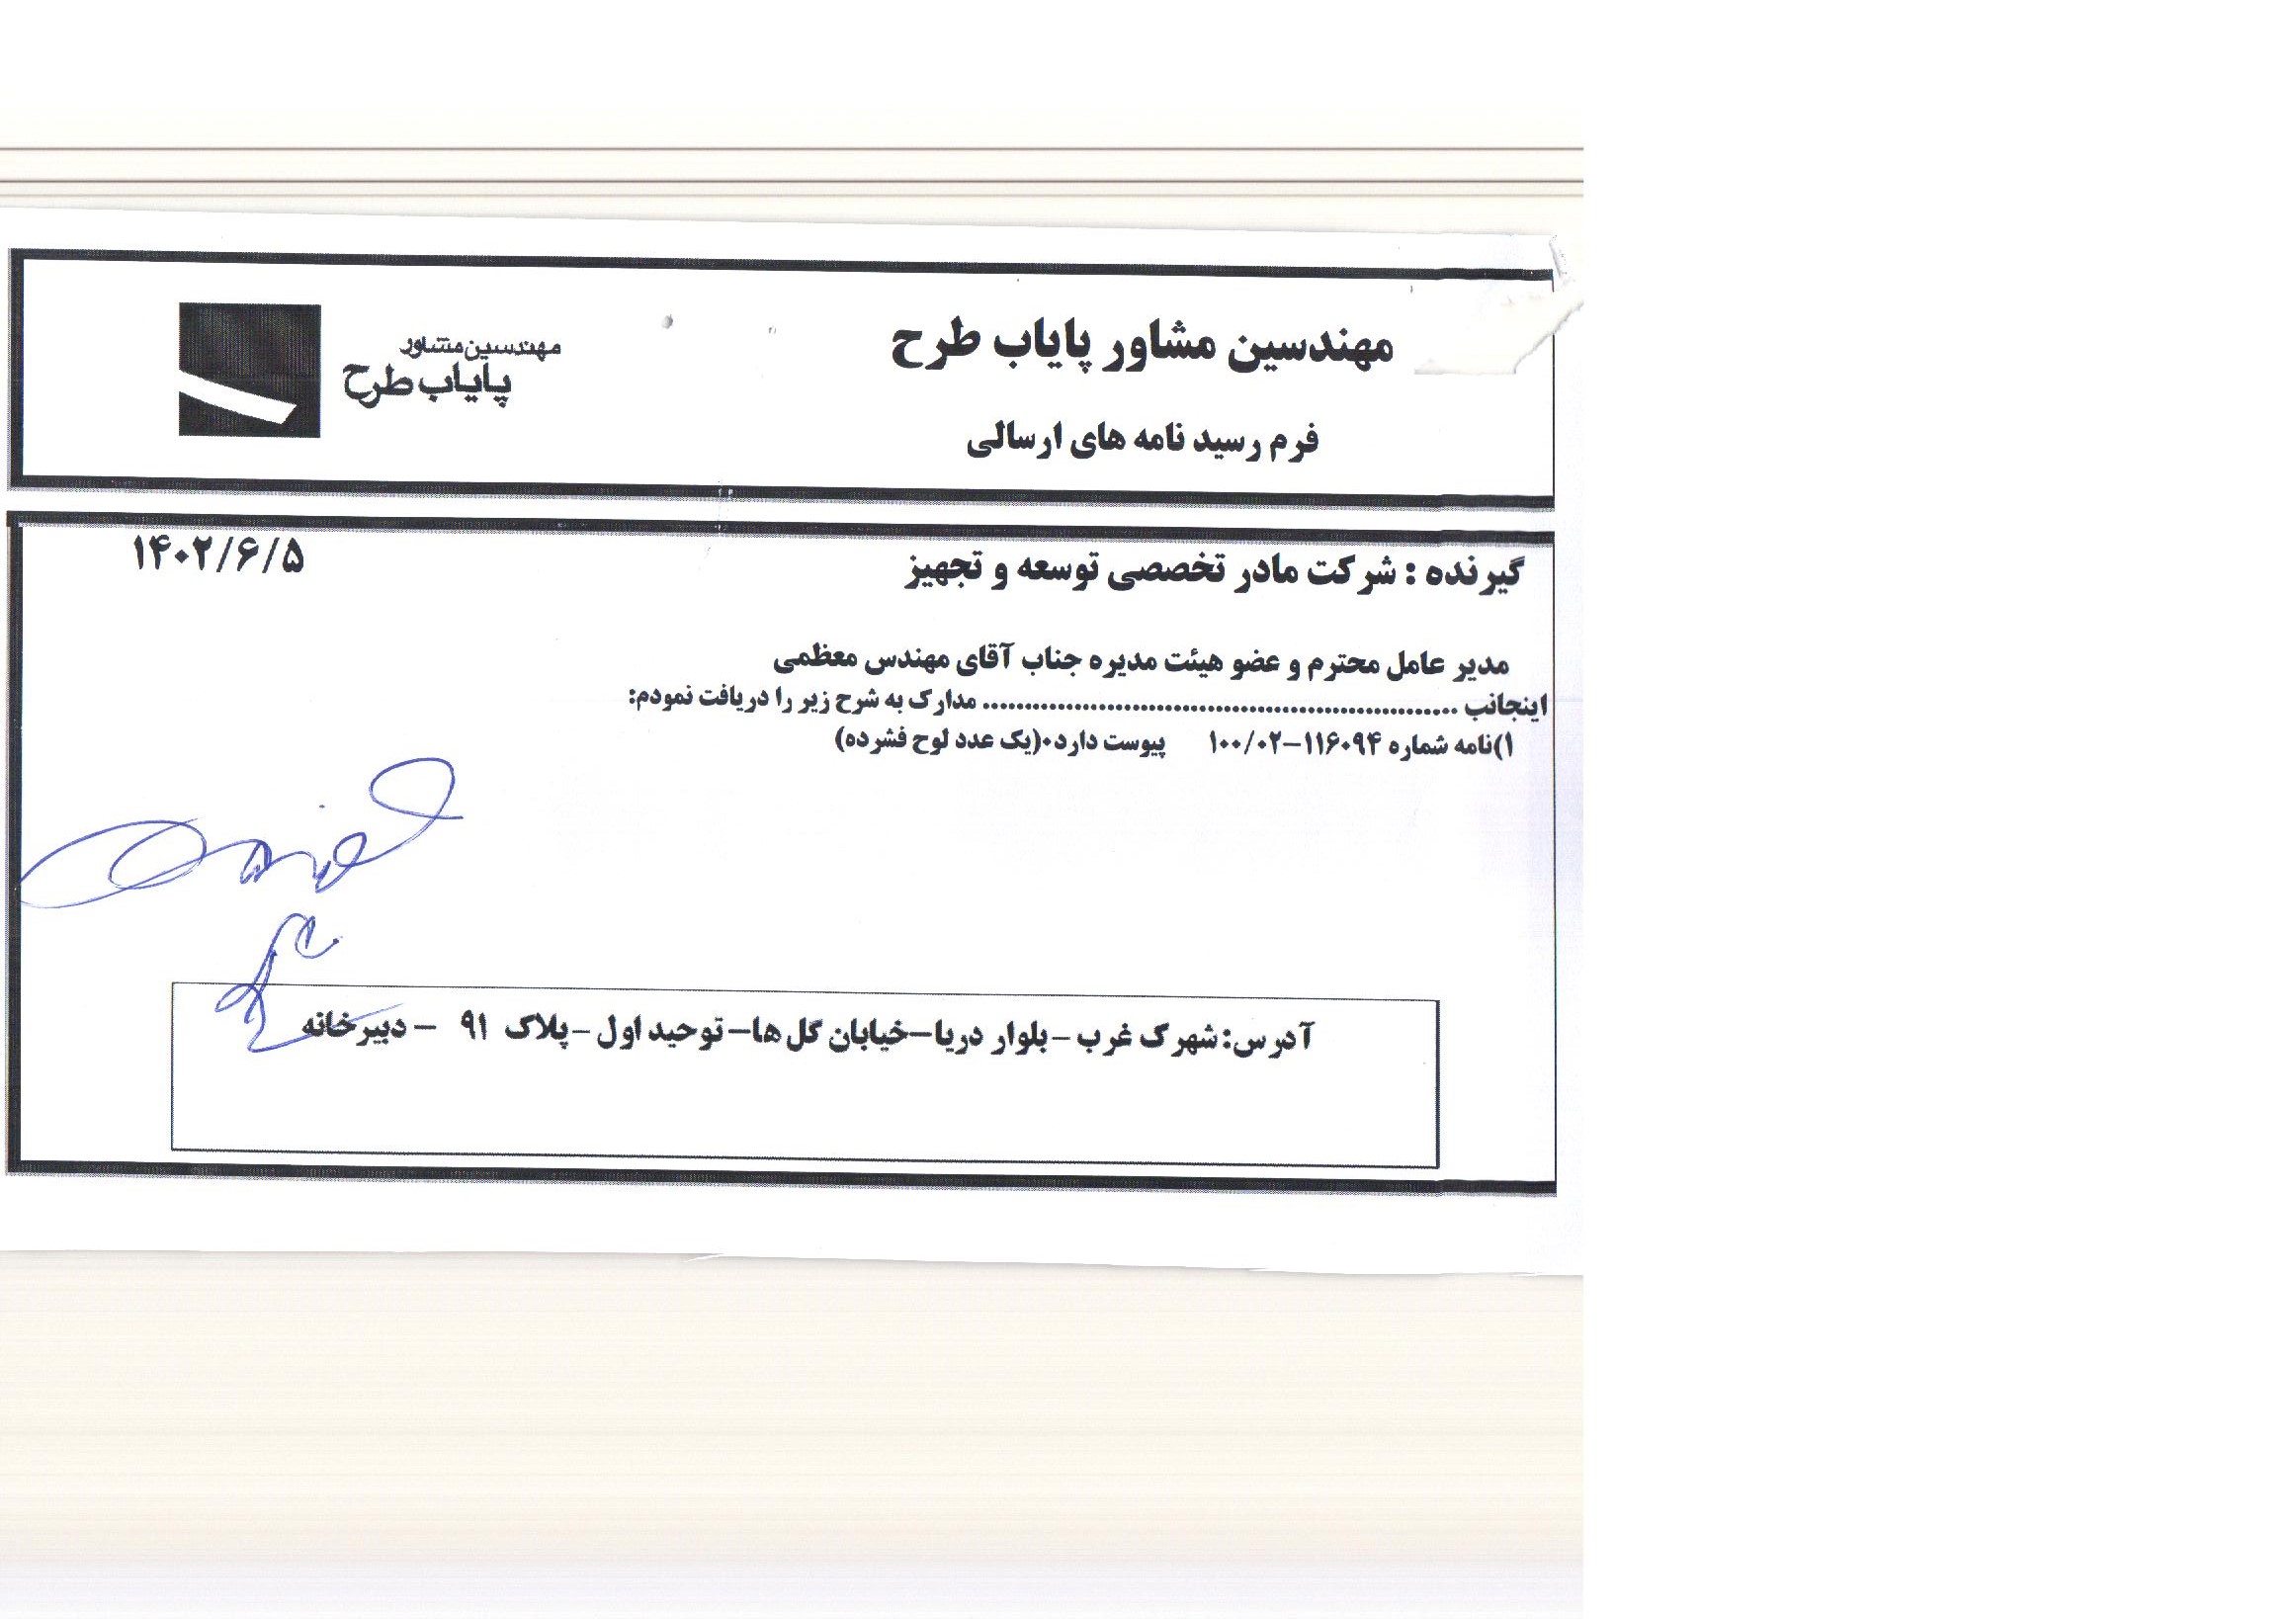 مهندسین مشاور پایاب طرح
مهندسین مشاور
پایاب طرح
فرم رسید نامه های ارسالی
گیرنده : شرکت مادر تخصصی توسعه و تجهیز
۱۴۰۲/۶/۵
مدیر عامل محترم و عضو هیئت مدیره جناب آقای مهندس معظمی
اینجانب ........................................................ مدارک به شرح زیر را دریافت نمودم:
۱)نامه شماره ۱۱۶۰۹۴-۱۰۰/۰۲ پیوست دارد۰(یک عدد لوح فشرده)
آدرس: شهرک غرب – بلوار دریا–خیابان گل ها– توحید اول – پلاک ۹۱ – دبیرخانه